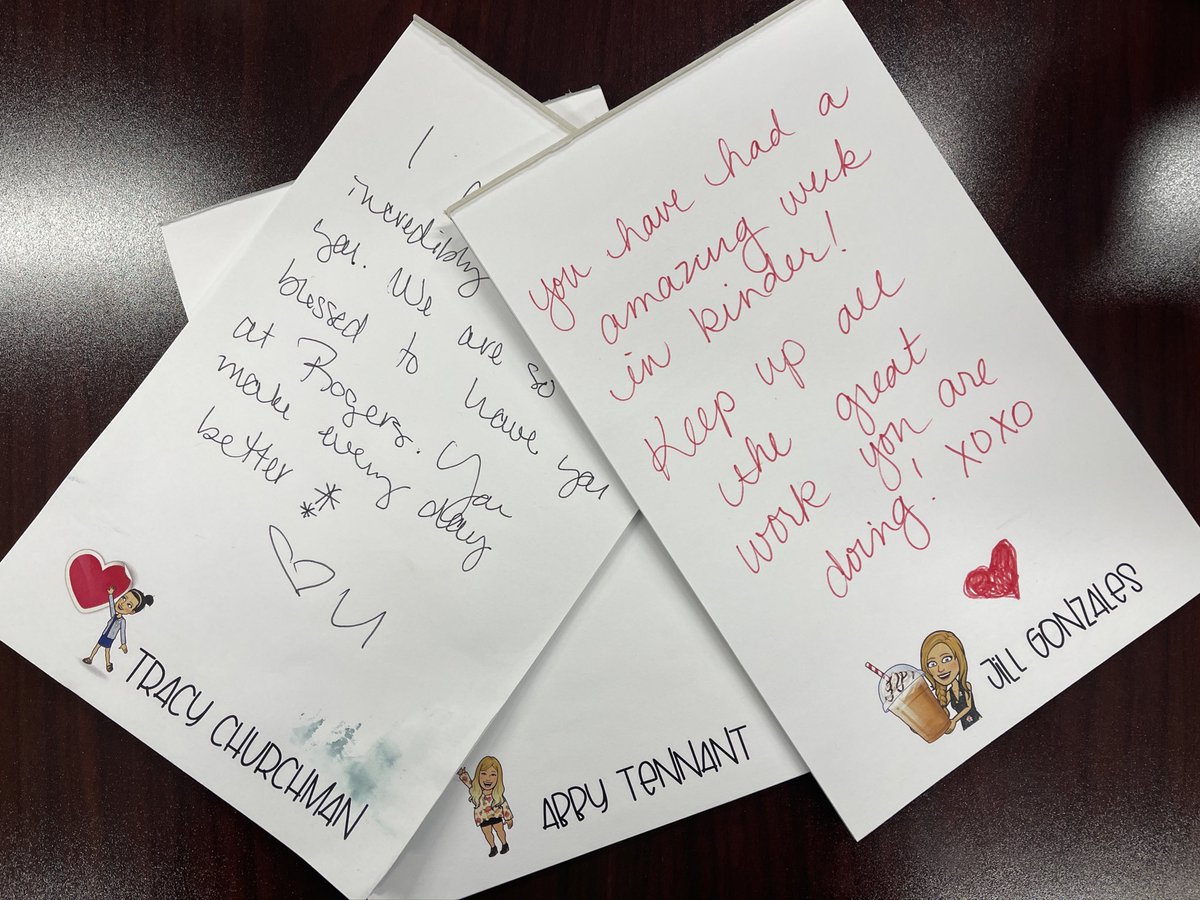 I
incredibly
you. We are so
blessed to have you
at Rogers. You
make every day
better **
♡ U
TRACY CHURCHMAN
ABBY TENNANT
you have had a
amazing week
in kinder!
Keep up all
the great
work you are
doing! XOXO
JILL GONZALES